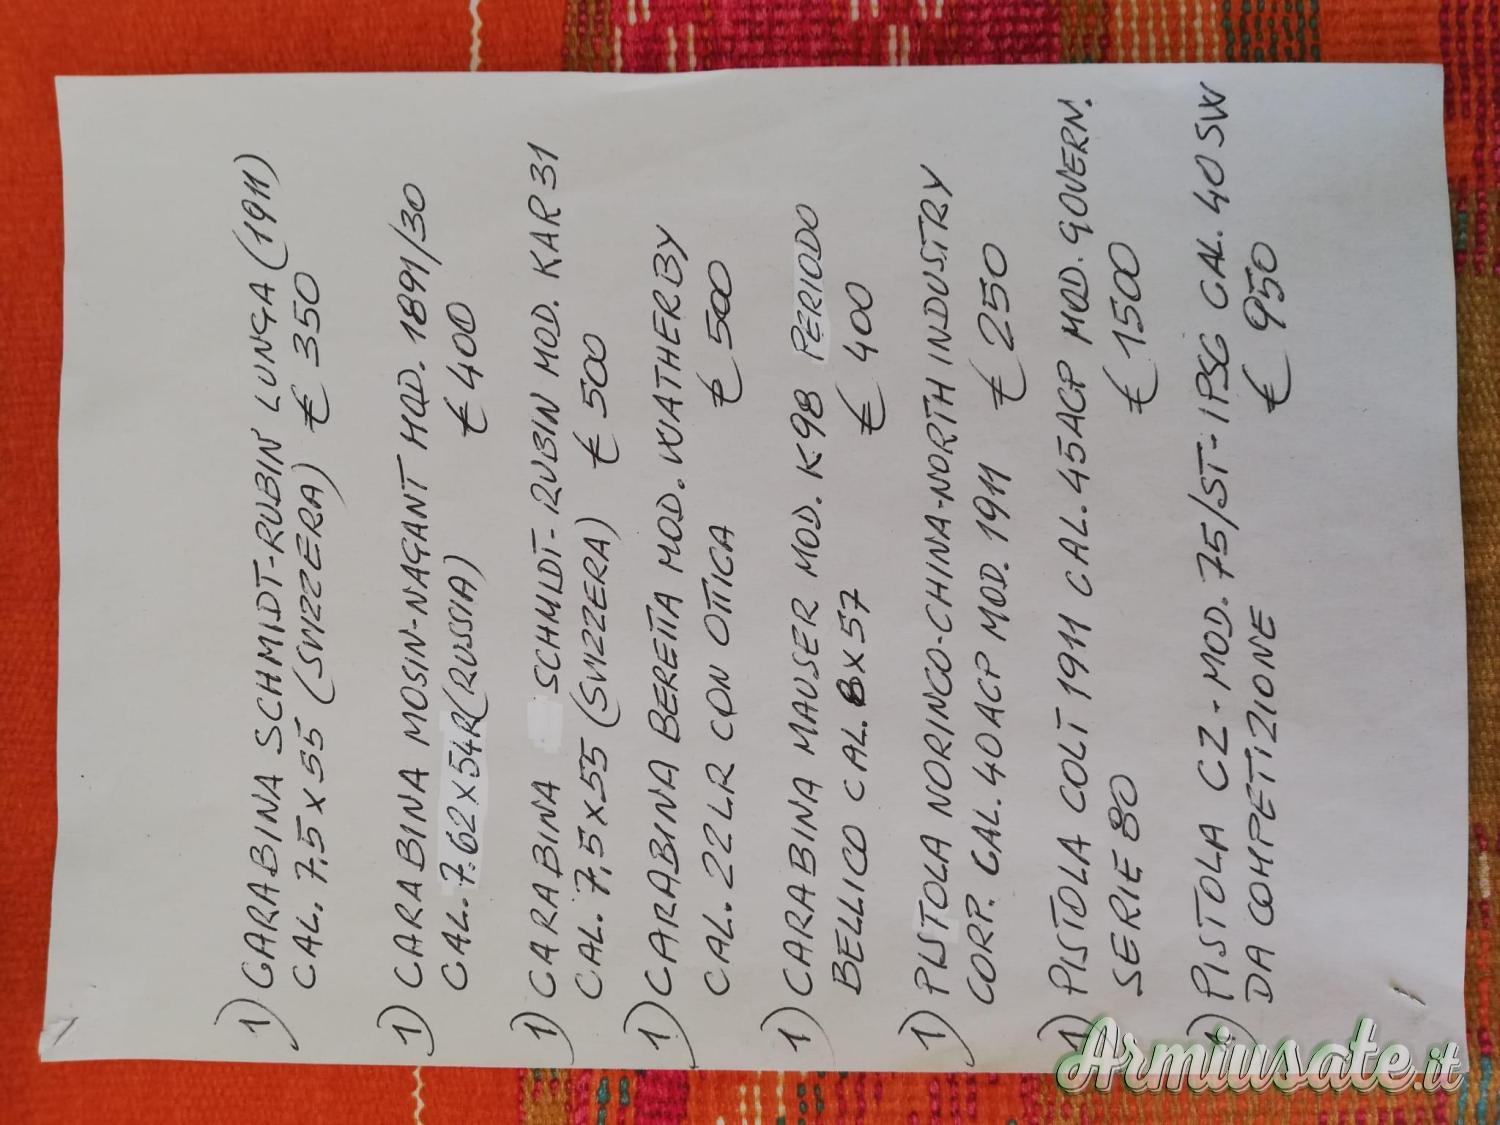 1) CARABINA SCHMIDT-RUBIN LUNGA (1911)
CAL. 7,5 x 55 (SVIZZERA) € 350
1) CARABINA MOSIN-NAGANT MOD. 1891/30
CAL. 7.62 x 54R (RUSSIA) € 400
1) CARABINA SCHMIDT-RUBIN MOD. KAR 31
CAL. 7,5 x 55 (SVIZZERA) € 500
1) CARABINA BERETTA MOD. WATHERBY
CAL. 22LR CON OTTICA € 500
1) CARABINA MAUSER MOD. K98 PERIODO
BELLICO CAL. 8 x 57 € 400
1) PISTOLA NORINCO-CHINA-NORTH INDUSTRY
CORP. CAL. 40 ACP MOD. 1911 € 250
1) PISTOLA COLT 1911 CAL. 45ACP MOD. GOVERN.
SERIE 80 € 1500
1) PISTOLA CZ-MOD. 75/ST-IPSC CAL. 40 SW
DA COMPETIZIONE € 950
Armiusate.it